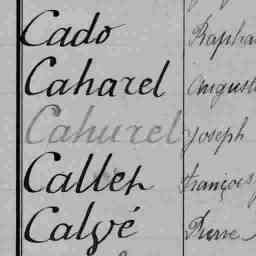 Cado Rapha
Caharel Auguste
Cahurel Joseph
Callet François
Calvé Pierre